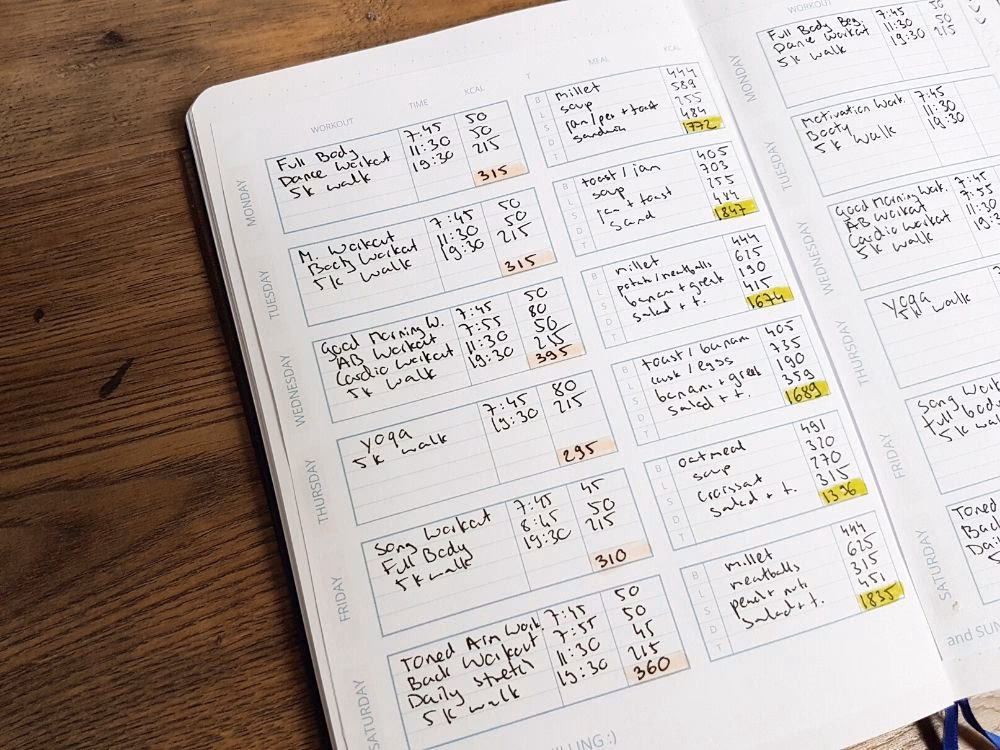 WORKOUT TIME KCAL T MEAL KCAL
MONDAY
Full Body 7:45 50
Dance Workout 11:30 50
5k walk 19:30 215
315
B millet 444
L soup 589
S jam/per + toast 255
D sandwich 484
T 1772
TUESDAY
M. Workout 7:45 50
Booty Workout 11:30 50
5k walk 19:30 215
315
B toast / jam 405
L soup 703
S jam + toast 255
D sand 484
T 1847
WEDNESDAY
Good Morning W. 7:45 50
AB Workout 7:55 80
Cardio workout 11:30 50
5k walk 19:30 215
395
B millet 444
L potato/meatballs 625
S banana + greek 190
D salad + t. 415
T 1674
THURSDAY
yoga 7:45 80
5k walk 19:30 215
295
B toast / banana 405
L cusk / eggs 735
S banana + greek 190
D salad + t. 359
T 1689
FRIDAY
Song Workout 7:45 45
Full Body 8:45 50
5k walk 19:30 215
310
B oatmeal 491
L soup 320
S croissat 270
D salad + t. 315
T 1396
SATURDAY
Toned Arm Work. 7:45 50
Back Workout 7:55 50
Daily stretch 11:30 45
5k walk 19:30 215
360
B millet 444
L meatballs 625
S peanut nuts 315
D salad + t. 451
T 1835
LLING :)
WORKOUT
MONDAY
Full Body Beg. 7:45 50
Dance Workout 11:30 50
5k walk 19:30 215
TUESDAY
Motivation Work. 7:45
Booty 11:30
5k walk 19:30
WEDNESDAY
Good Morning Work. 7:45
AB Workout 7:55
Cardio workout 11:30
5k walk
THURSDAY
yoga
5k walk
FRIDAY
Song Work
full body
5k walk
SATURDAY
Toned
Back
Daily
5k
and SUN